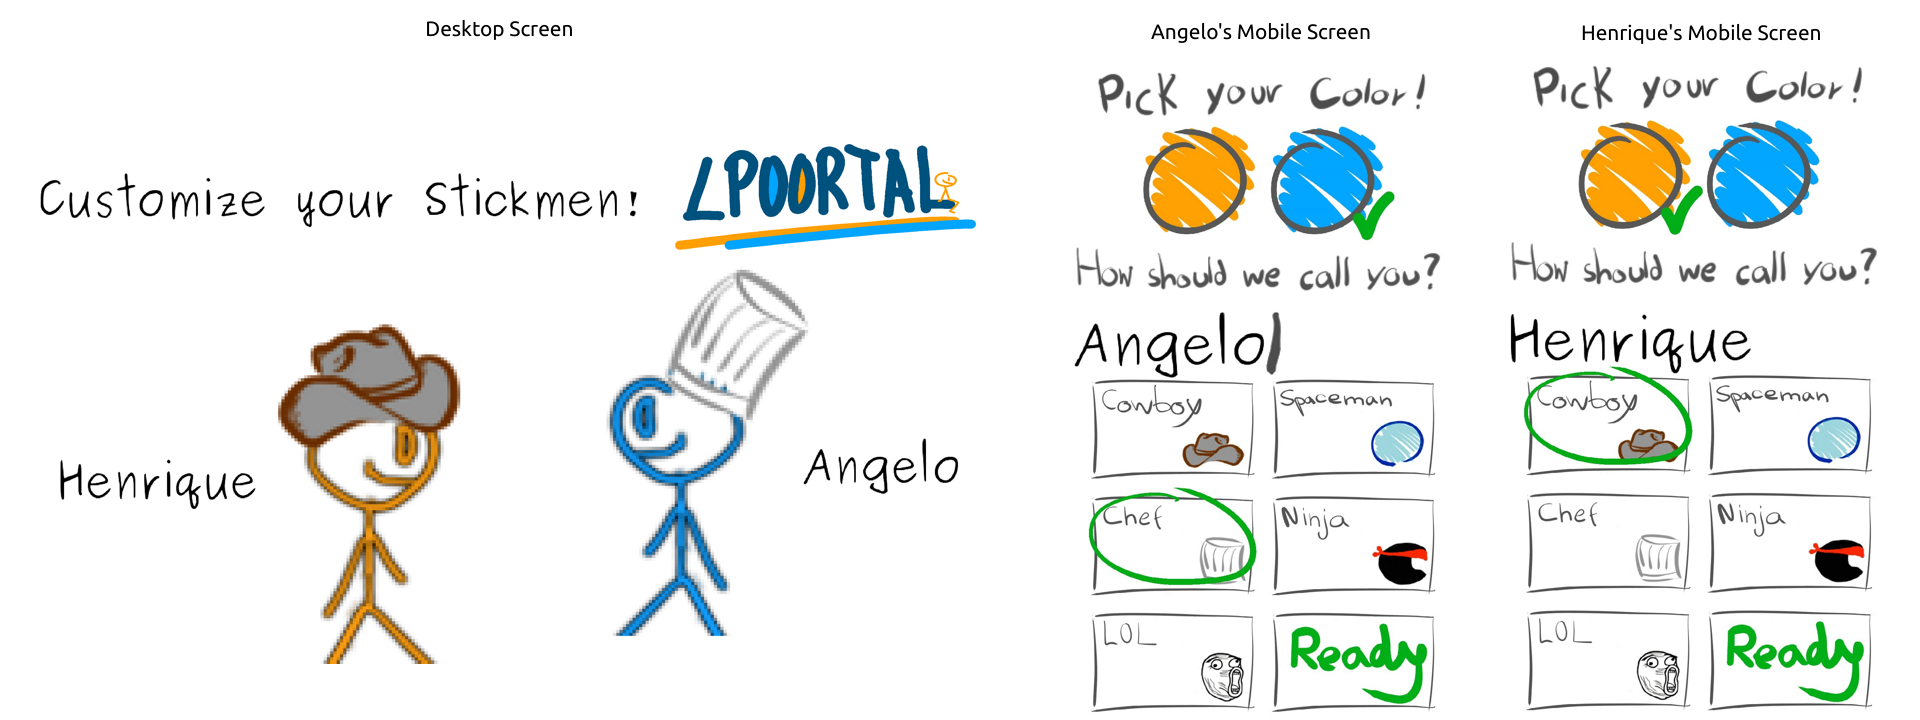 Desktop Screen
Customize your Stickmen!
LPOORTAL
Henrique
Angelo
Angelo's Mobile Screen
Pick your Color!
How should we call you?
Angelo
Cowboy
Spaceman
Chef
Ninja
LOL
Ready
Henrique's Mobile Screen
Pick your Color!
How should we call you?
Henrique
Cowboy
Spaceman
Chef
Ninja
LOL
Ready